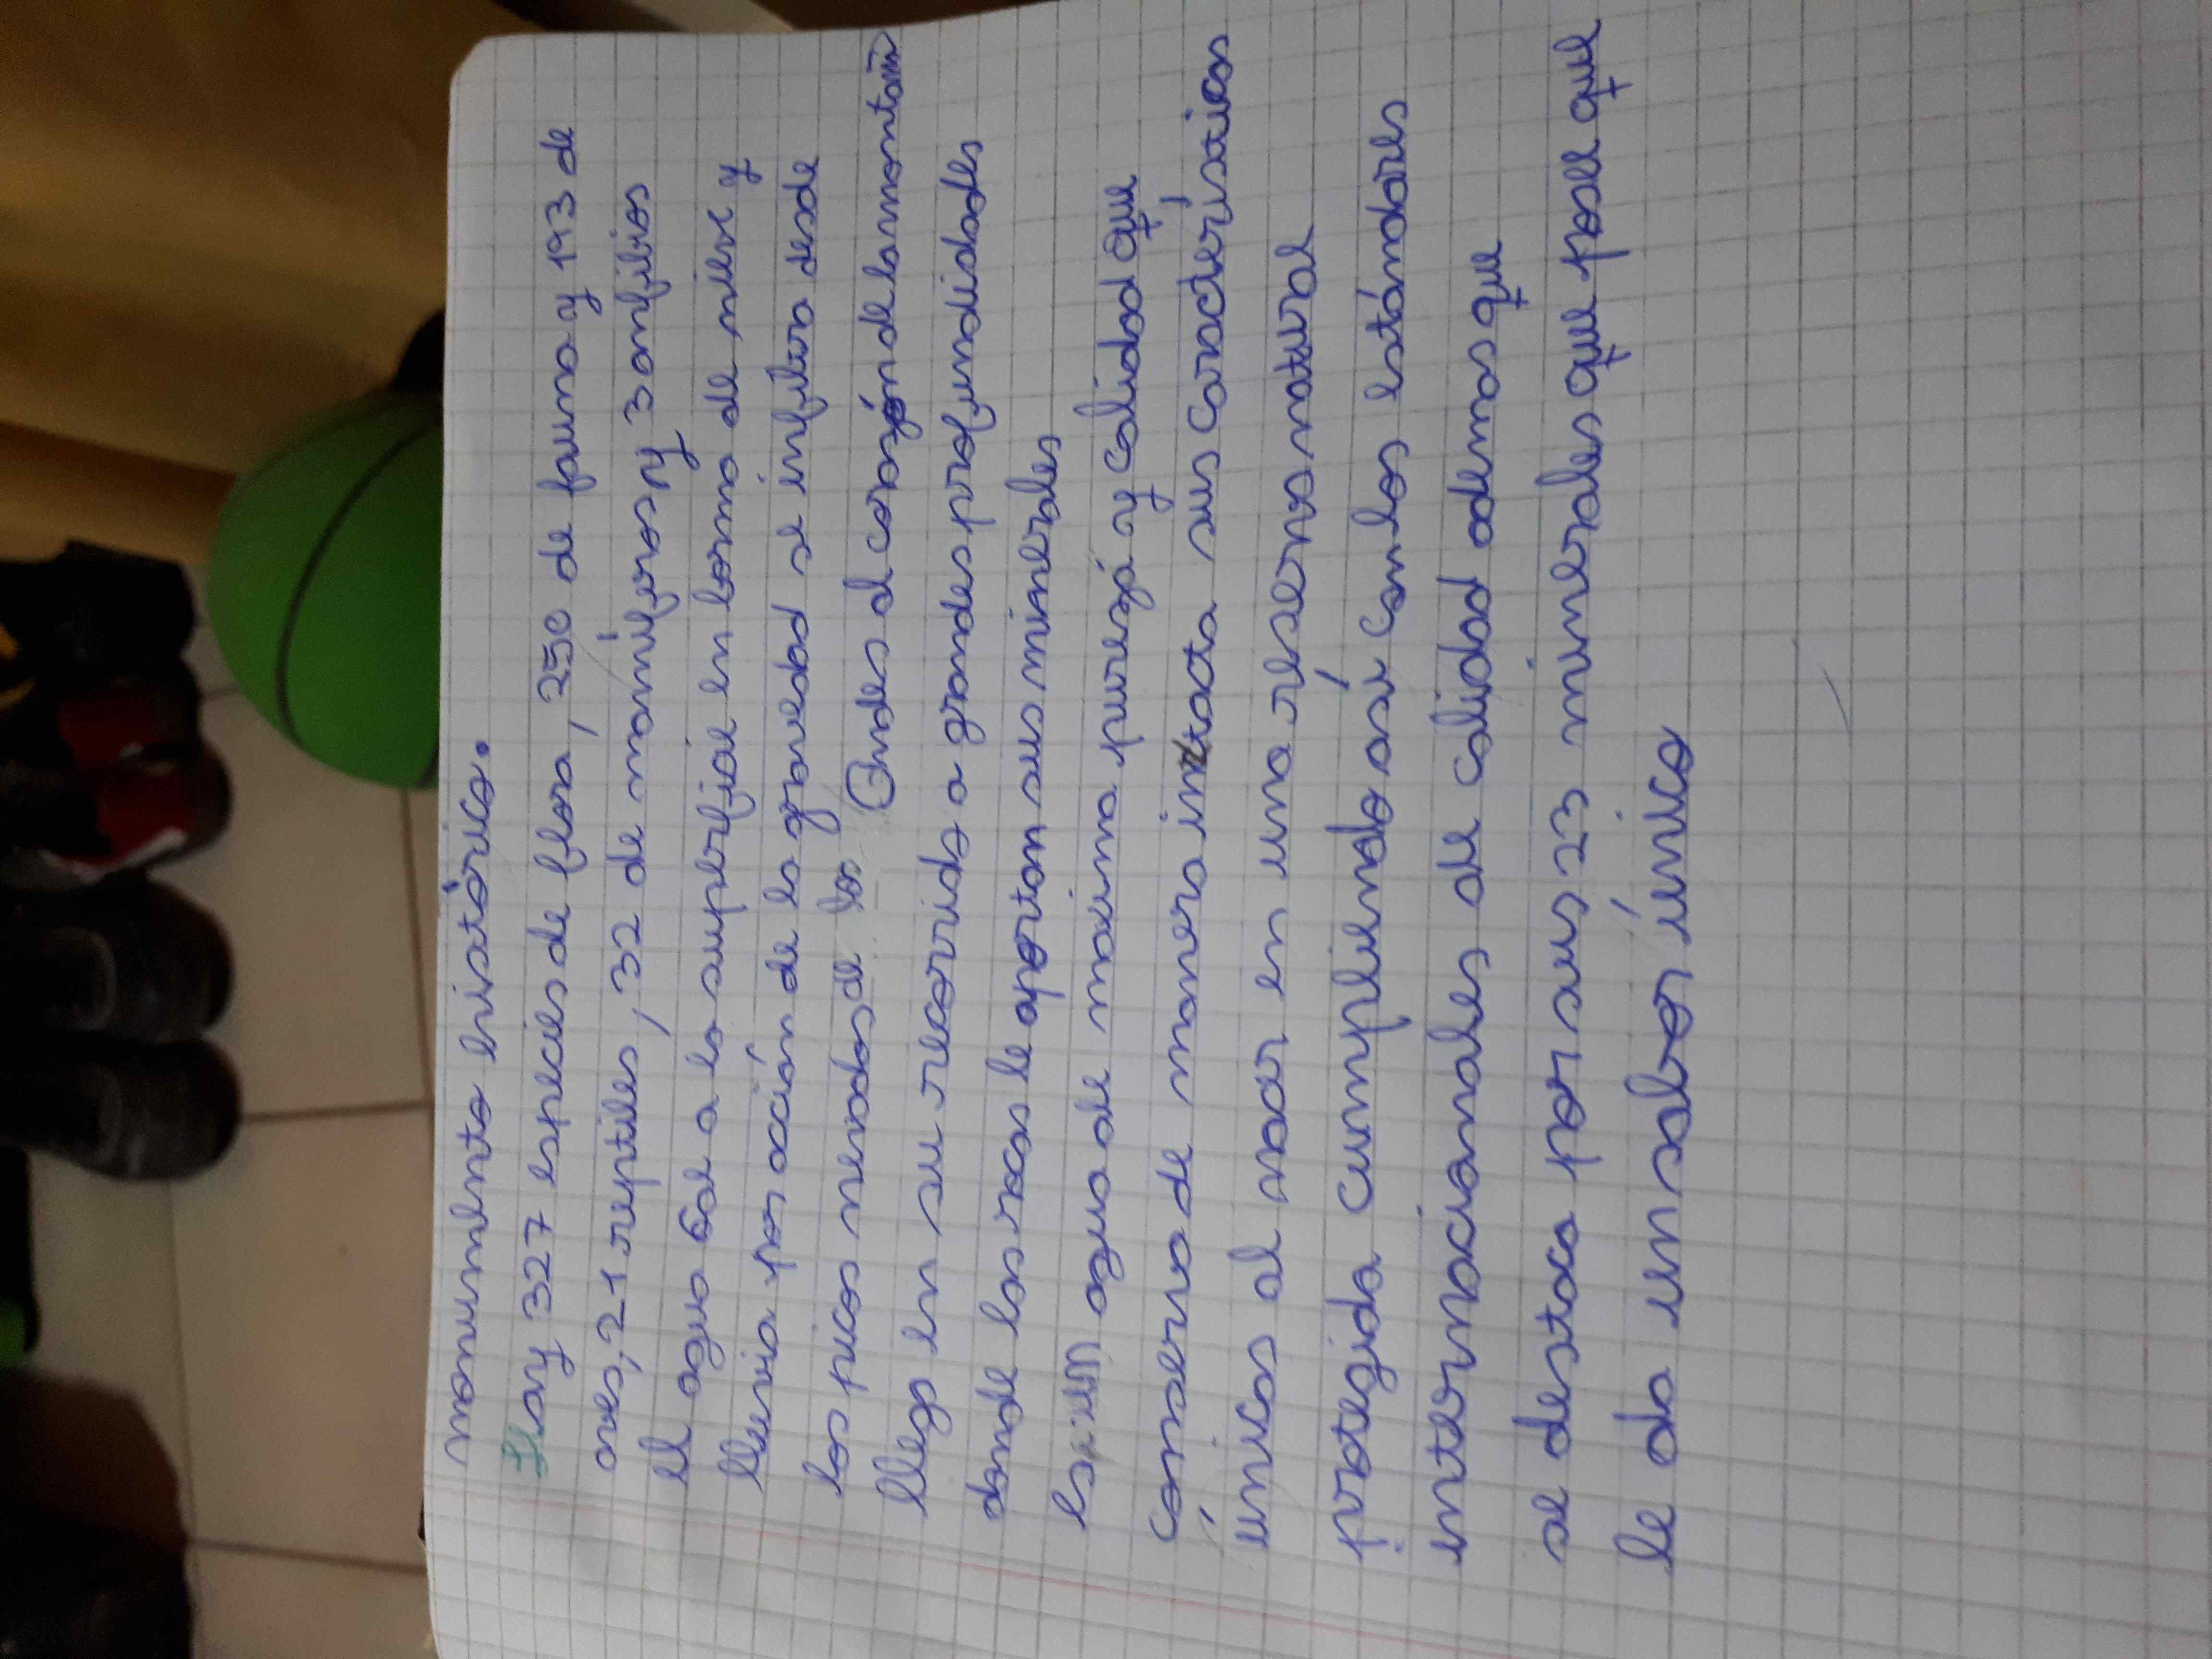 monumento histórico.
Hay 327 especies de flora, 250 de fauna y 193 de
aves, 21 reptiles, 32 de mamíferos y 3 anfibios
el agua cae a la superficie en forma de nieve y
lluvia por acción de la gravedad se infiltra desde
los picos nevados de los Andes al corazón de la montaña
llega en su recorrido a grandes profundidades
donde las rocas le aportan sus minerales
es un agua de maxima purezá y calidad que
conserva de manera intacta sus características
únicas al nacer en una reserva natural
protegida cumpliendo así con los estándares
internacionales de calidad ademas que
se destaca por sus 23 minerales que posee que
le da un sabor único